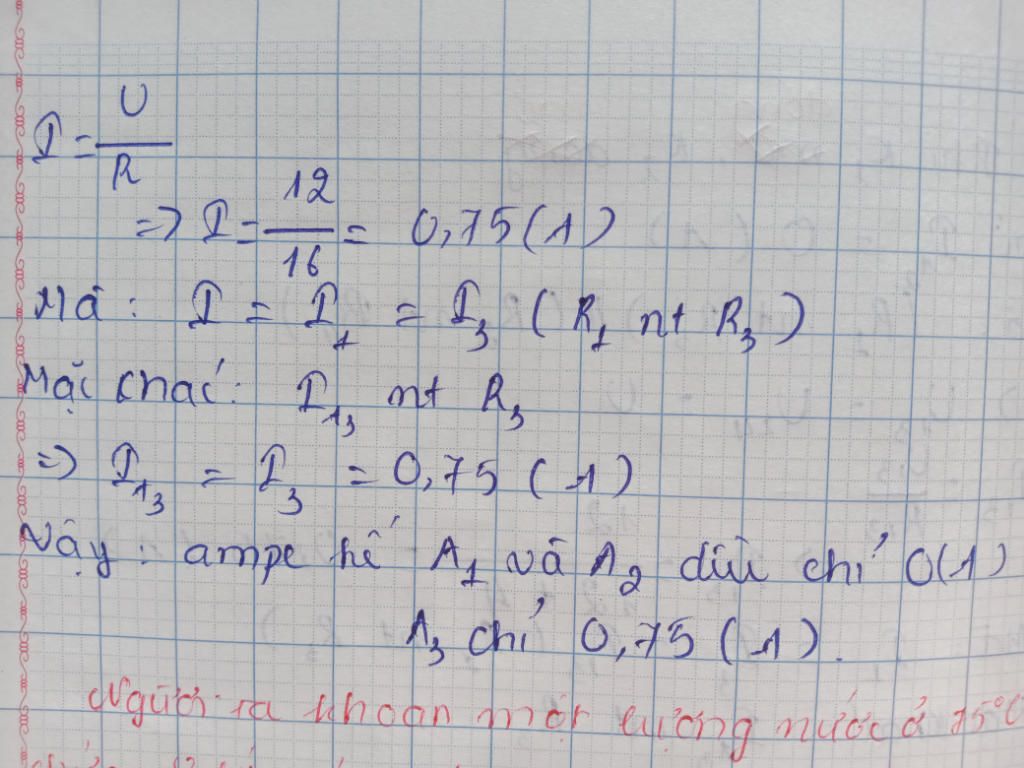 I = U/R
=> I = 12/16 = 0,75 (A)
Mà: I = I₁ = I₃ (R₁ nt R₃)
Mặt khác: I₁₃ nt R₃
=> I₁₃ = I₃ = 0,75 (A)
Vậy: ampe kế A₁ và A₂ đều chỉ 0(A)
A₃ chỉ 0,75 (A).
Người ta khoan một lượng nước ở 75°C